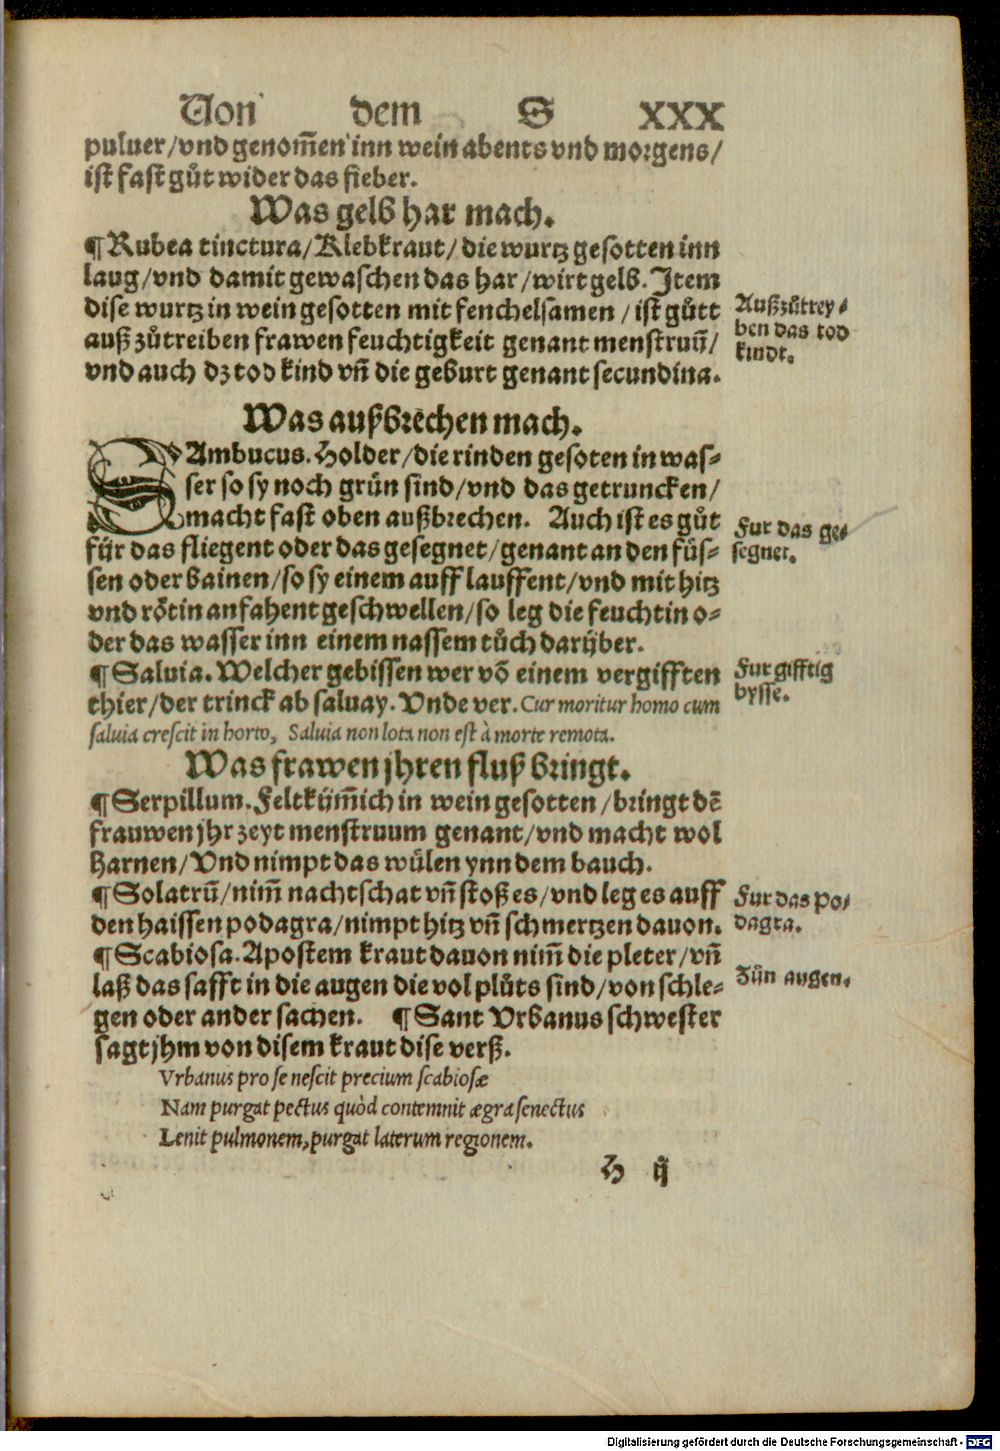 Von dem S XXX
puluer/vnd genom̃en inn wein abents vnd morgens/
ist fast gůt wider das fieber.
Was gelb har mach.
¶ Rubea tinctura/Klebkraut/die wurtz gesotten inn
laug/vnd damit gewaschen das har/wirt gelb. Item
dise wurtz in wein gesotten mit fenchelsamen/ist gůtt
auß zůtreiben frawen feuchtigkeit genant menstruũ/
vnd auch dz tod kind vñ die geburt genant secundina.
Außzůtrey-
ben das tod
kindt.
Was außbrechen mach.
SAmbucus. Holder/die rinden gesoten in was-
ser so sy noch grůn sind/vnd das getruncken/
macht fast oben außbrechen. Auch ist es gůt
für das fliegent oder das gesegnet/genant an den fůs-
sen oder bainen/so sy einem auff lauffent/vnd mit hitz
vnd rőtin anfahent geschwellen/so leg die feuchtin o-
der das wasser inn einem nassem tůch darüber.
Fur das ge-
segnet.
¶ Saluia. Welcher gebissen wer võ einem vergifften
thier/der trinck ab saluay. Vnde ver. Cur moritur homo cum
saluia crescit in horto, Saluia non lota non est à morte remota.
Fur gifftig
bysse.
Was frawen jhren fluß bringt.
¶ Serpillum. Feltküm̃ich in wein gesotten/bringt dẽ
frauwen jhr zeyt menstruum genant/vnd macht wol
harnen/Vnd nimpt das wůlen ynn dem bauch.
¶ Solatrũ/nim̃ nachtschat vñ stoß es/vnd leg es auff
den haissen podagra/nimpt hitz vñ schmertzen dauon.
Fur das po-
dagra.
¶ Scabiosa. Apostem kraut dauon nim̃ die pleter/vñ
laß das safft in die augen die vol plůts sind/von schle-
gen oder ander sachen. ¶ Sant Vrbanus schwester
sagt jhm von disem kraut dise verß.
Zůn augen.
Vrbanus pro se nescit precium scabiosæ
Nam purgat pectus quòd contemnit ægra senectus
Lenit pulmonem, purgat laterum regionem.
H ij
Digitalisierung gefördert durch die Deutsche Forschungsgemeinschaft - DFG